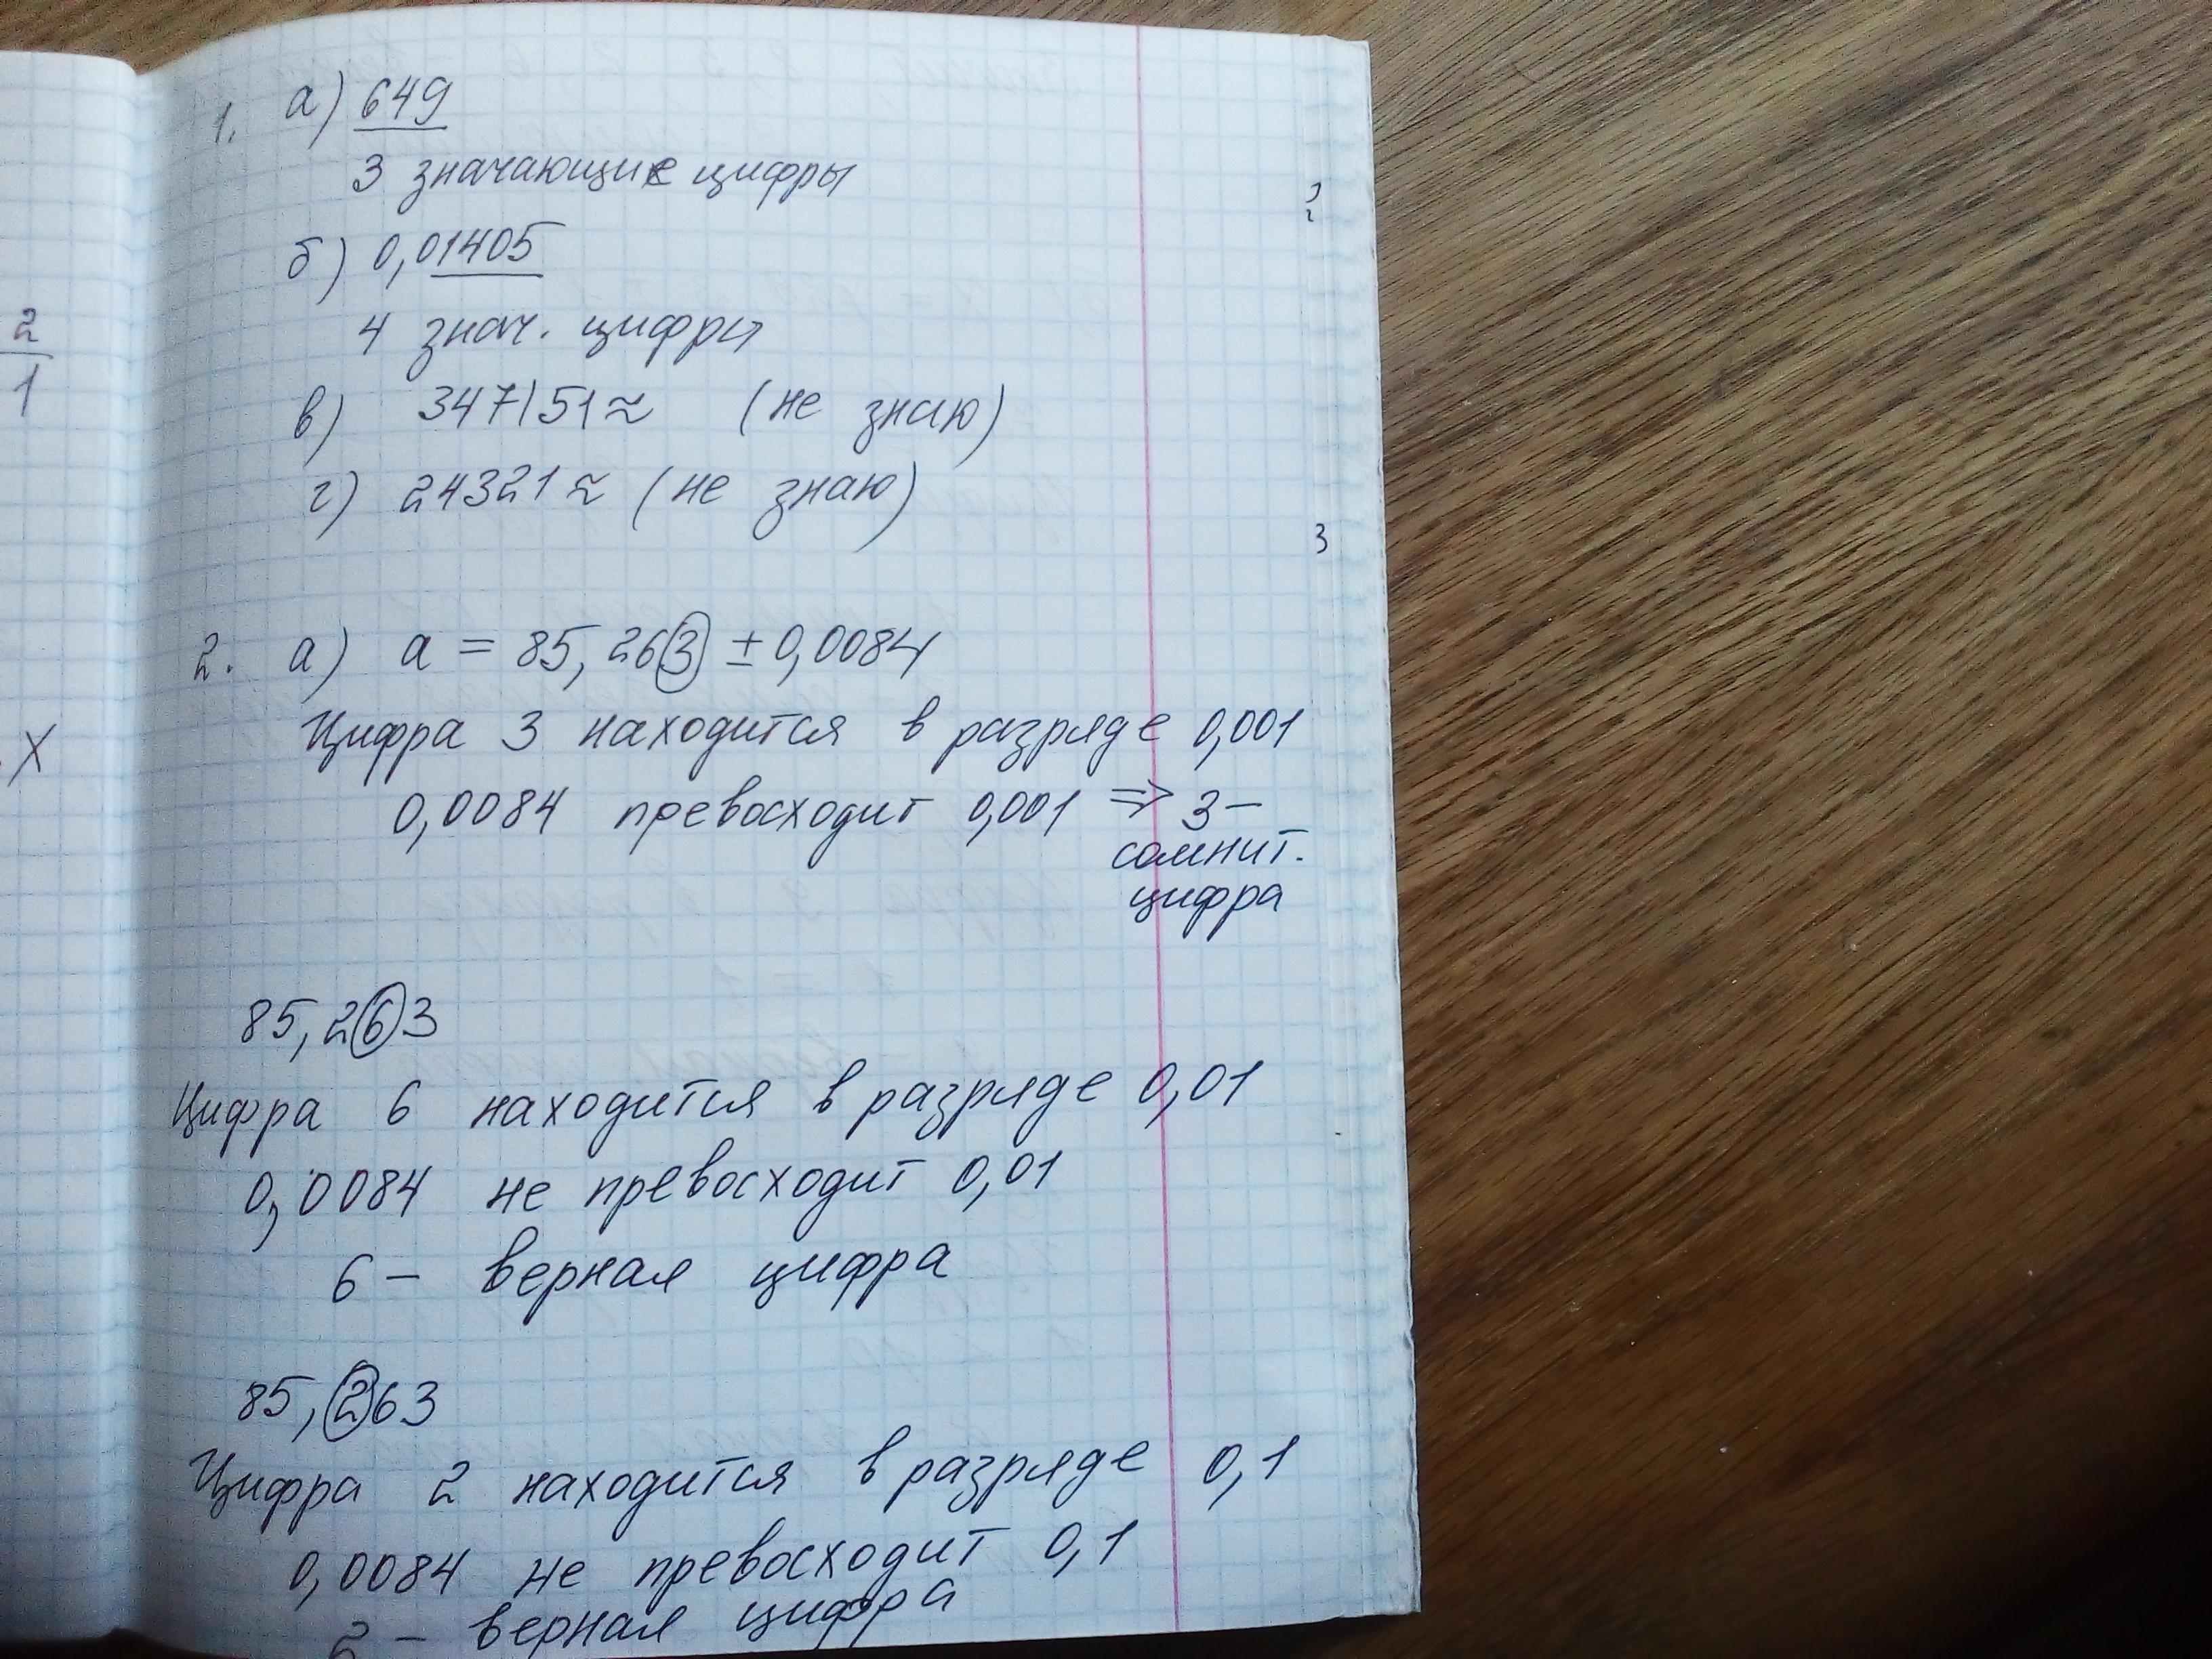 2
1
X
1. а) 649
3 значающие цифры
б) 0,01405
4 знач. цифры
в) 347151≈ (не знаю)
г) 24321≈ (не знаю)
3
2. а) а = 85,263 ± 0,0084
Цифра 3 находится в разряде 0,001
0,0084 превосходит 0,001 => 3 –
сомнит.
цифра
85,263
Цифра 6 находится в разряде 0,01
0,0084 не превосходит 0,01
6 – верная цифра
85,263
Цифра 2 находится в разряде 0,1
0,0084 не превосходит 0,1
2 – верная цифра